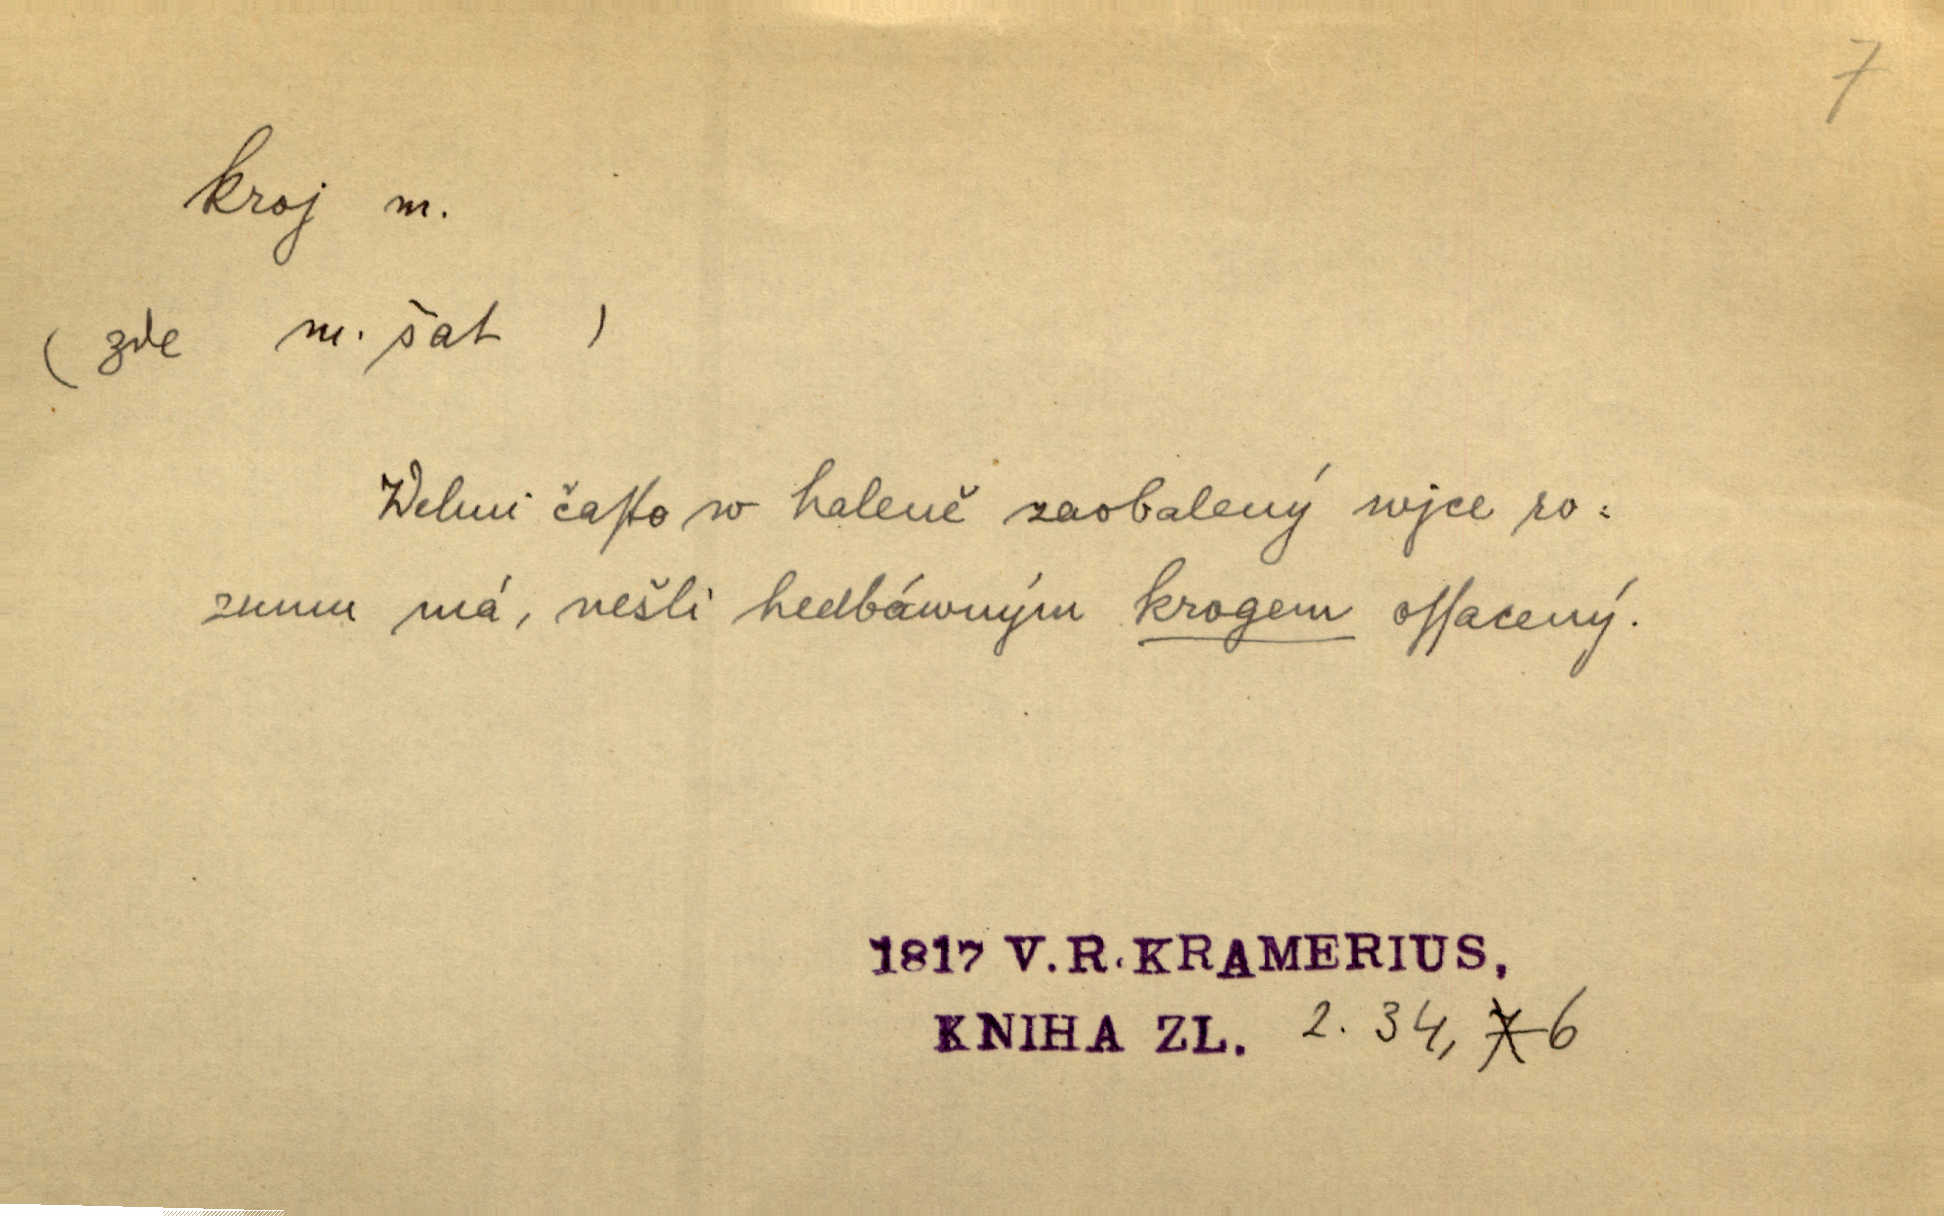 7
kroj m.
(zde m. šat)
Welmi čaſto w haleně zaobalený wjce ro:
zumu má, nešli hedbáwným krogem oſſacený.
1817 V.R.KRAMERIUS,
KNIHA ZL. 2. 34, 6